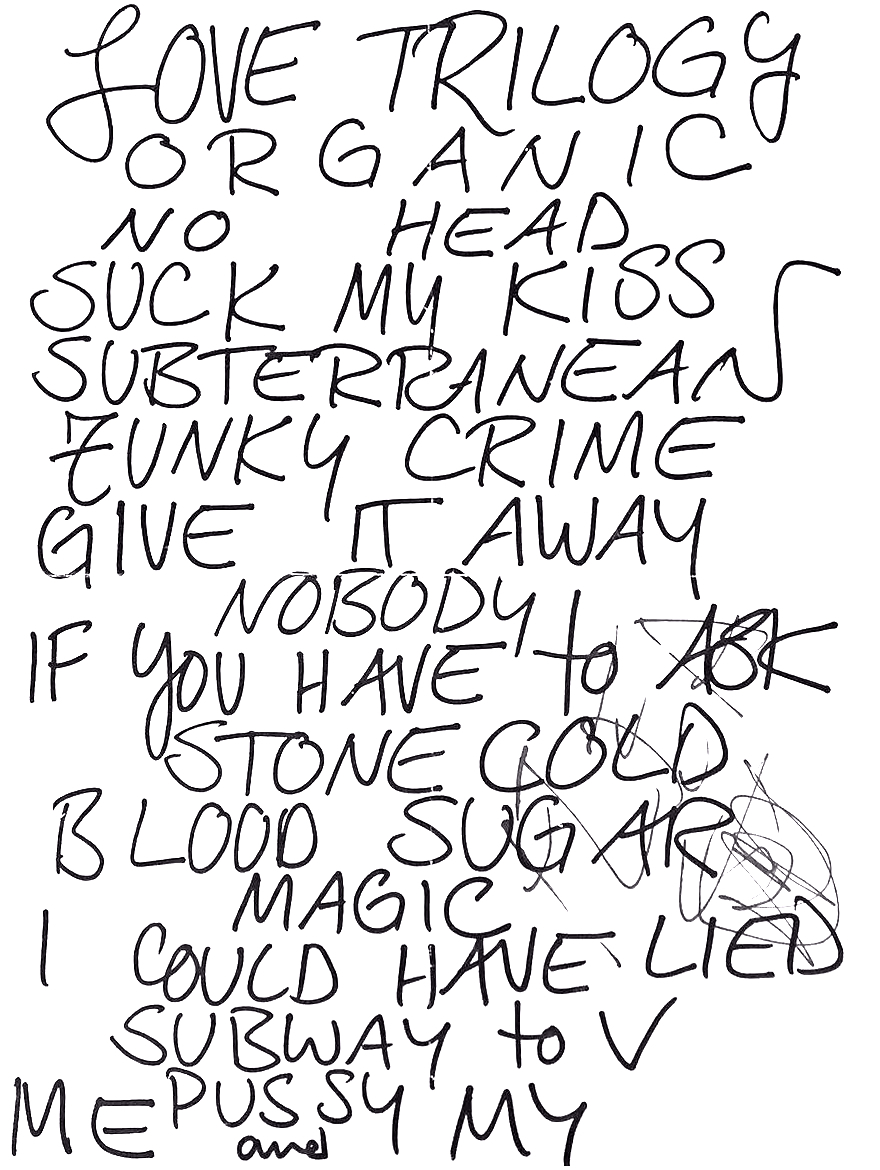 LOVE TRILOGY
ORGANIC
NO HEAD
SUCK MY KISS
SUBTERRANEAN
FUNKY CRIME
GIVE IT AWAY
NOBODY
IF YOU HAVE to ASK
STONE COLD
BLOOD SUGAR
MAGIC
I COULD HAVE LIED
SUBWAY to V
ME PUSSY MY
and